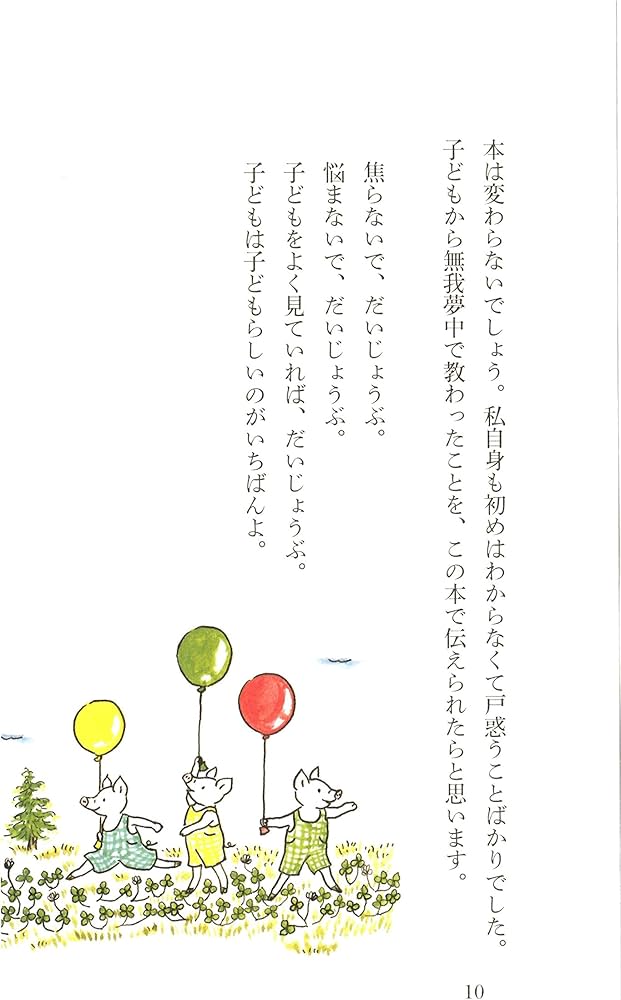 本は変わらないでしょう。私自身も初めはわからなくて戸惑うことばかりでした。
子どもから無我夢中で教わったことを、この本で伝えられたらと思います。
焦らないで、だいじょうぶ。
悩まないで、だいじょうぶ。
子どもをよく見ていれば、だいじょうぶ。
子どもは子どもらしいのがいちばんよ。
10